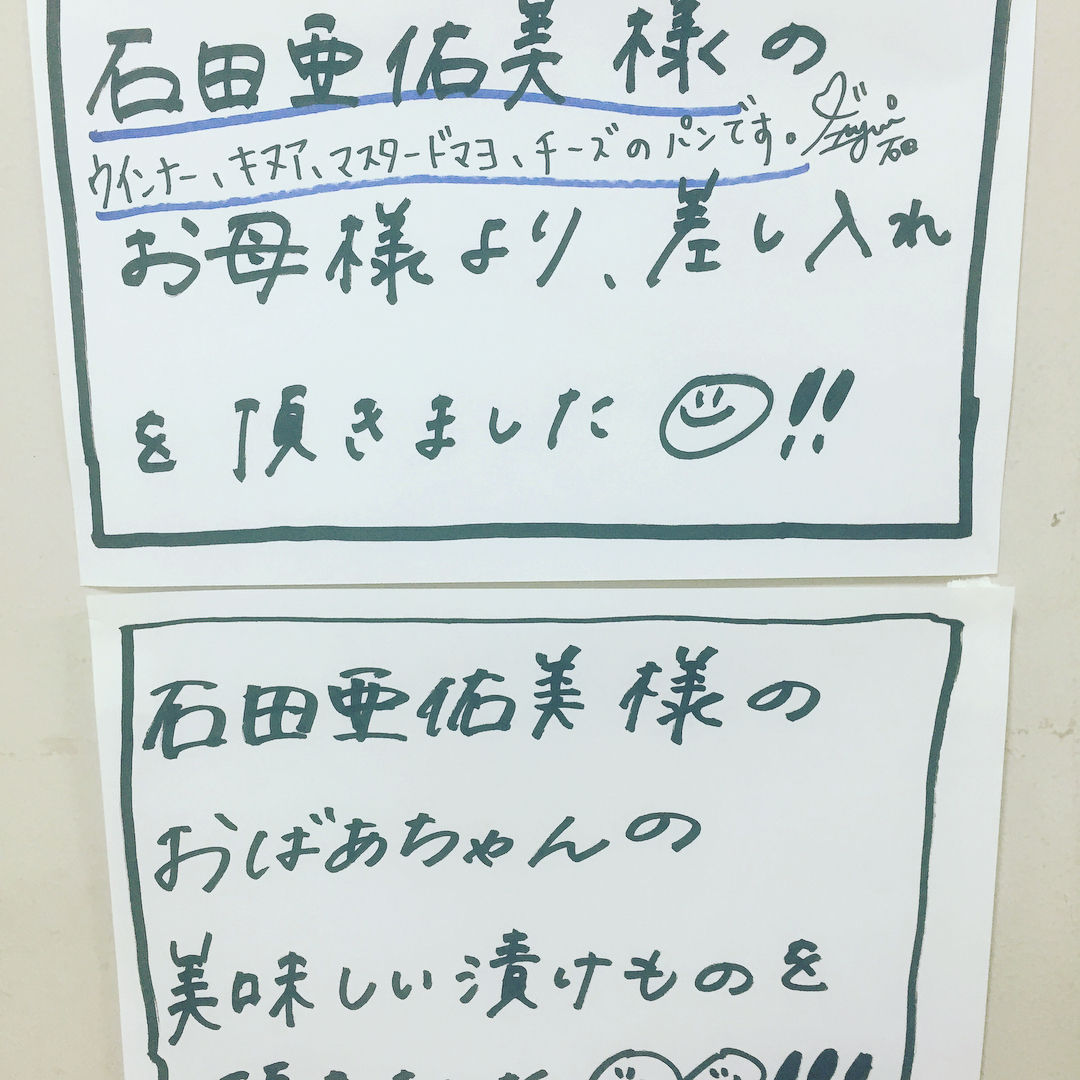 石田亜佑美様の
ウインナー、キヌア、マスタードマヨ、チーズのパンです。
石田
お母様より、差し入れ
を頂きました!!
石田亜佑美様の
おばあちゃんの
美味しい漬けものを
頂きました!!!